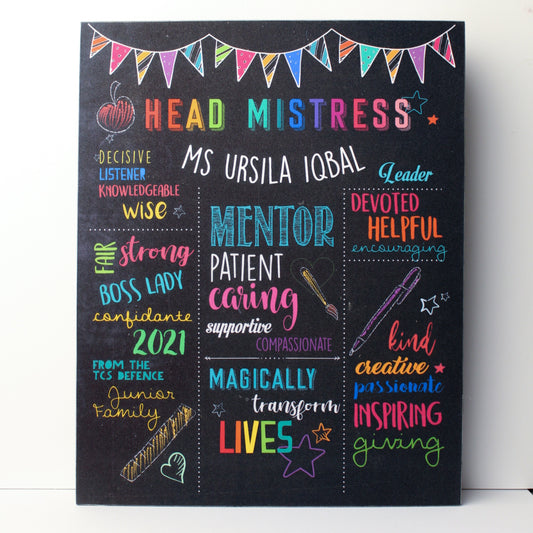 HEAD MISTRESS
MS URSILA IQBAL
DECISIVE
LISTENER
KNOWLEDGEABLE
WISE
FAIR
strong
BOSS LADY
confidante
2021
FROM THE
TCS DEFENCE
Junior
Family
MENTOR
PATIENT
caring
supportive
COMPASSIONATE
MAGICALLY
transform
LIVES
Leader
DEVOTED
HELPFUL
encouraging
kind
creative
passionate
INSPIRING
giving